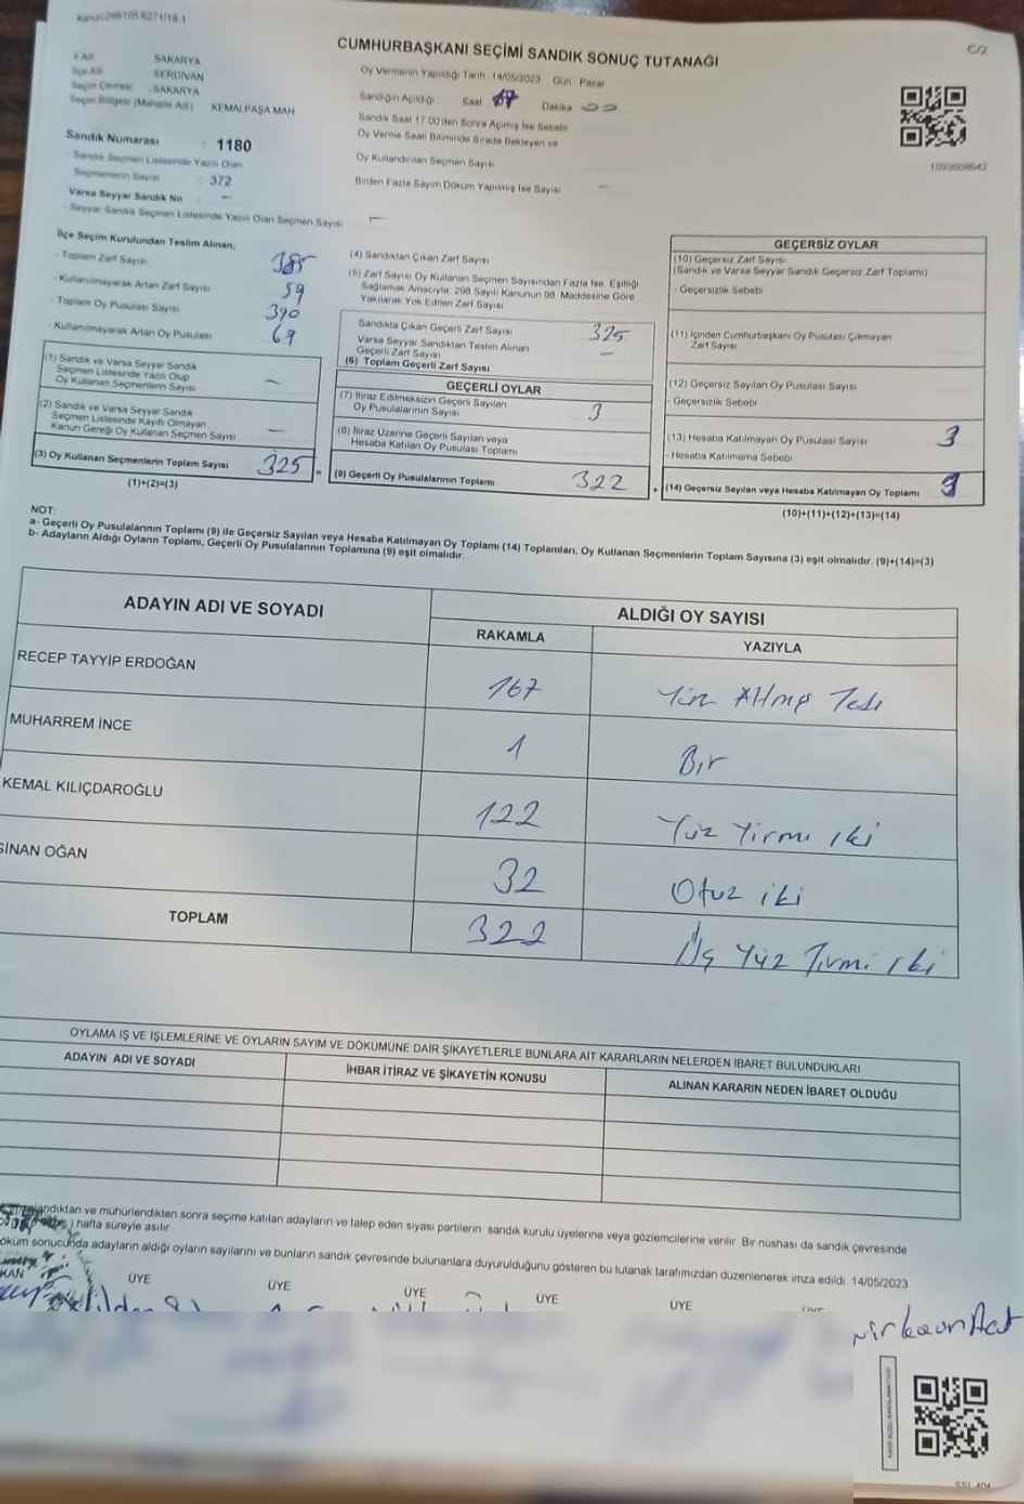 Kanun:298/105,6271/18-1
C/2
CUMHURBAŞKANI SEÇİMİ SANDIK SONUÇ TUTANAĞI
İl Adı SAKARYA
İlçe Adı SERDİVAN
Seçim Çevresi SAKARYA
Seçim Bölgesi (Mahalle Adı) KEMALPAŞA MAH
Sandık Numarası : 1180
Sandık Seçmen Listesinde Yazılı Olan
Seçmenlerin Sayısı : 372
Varsa Seyyar Sandık No -
- Seyyar Sandık Seçmen Listesinde Yazılı Olan Seçmen Sayısı —
Oy Vermenin Yapıldığı Tarih :14/05/2023 Gün: Pazar
Sandığın Açıldığı Saat 17 Dakika 00
Sandık Saat 17.00'den Sonra Açılmış İse Sebebi
Oy Verme Saati Bitiminde Sırada Bekleyen ve
Oy Kullandırılan Seçmen Sayısı
Birden Fazla Sayım Döküm Yapılmış İse Sayısı —
İlçe Seçim Kurulundan Teslim Alınan;
- Toplam Zarf Sayısı 385
- Kullanılmayarak Artan Zarf Sayısı 59
- Toplam Oy Pusulası Sayısı 390
- Kullanılmayarak Artan Oy Pusulası 69
(1) Sandık ve Varsa Seyyar Sandık
Seçmen Listesinde Yazılı Olup
Oy Kullanan Seçmenlerin Sayısı —
(2) Sandık ve Varsa Seyyar Sandık
Seçmen Listesinde Kayıtlı Olmayan
Kanun Gereği Oy Kullanan Seçmen Sayısı —
(3) Oy Kullanan Seçmenlerin Toplam Sayısı 325 =
(1)+(2)=(3)
(4) Sandıktan Çıkan Zarf Sayısı
(5) Zarf Sayısı Oy Kullanan Seçmen Sayısından Fazla İse, Eşitliği
Sağlamak Amacıyla, 298 Sayılı Kanunun 98. Maddesine Göre
Yakılarak Yok Edilen Zarf Sayısı
Sandıkta Çıkan Geçerli Zarf Sayısı 325
Varsa Seyyar Sandıktan Teslim Alınan
Geçerli Zarf Sayısı —
(6) Toplam Geçerli Zarf Sayısı
GEÇERLİ OYLAR
(7) İtiraz Edilmeksizin Geçerli Sayılan
Oy Pusulalarının Sayısı 3
(8) İtiraz Üzerine Geçerli Sayılan veya
Hesaba Katılan Oy Pusulası Toplamı
(9) Geçerli Oy Pusulalarının Toplamı 322 +
GEÇERSİZ OYLAR
(10) Geçersiz Zarf Sayısı
(Sandık ve Varsa Seyyar Sandık Geçersiz Zarf Toplamı)
- Geçersizlik Sebebi
(11) İçinden Cumhurbaşkanı Oy Pusulası Çıkmayan
Zarf Sayısı
(12) Geçersiz Sayılan Oy Pusulası Sayısı
- Geçersizlik Sebebi
(13) Hesaba Katılmayan Oy Pusulası Sayısı 3
- Hesaba Katılmama Sebebi
(14) Geçersiz Sayılan veya Hesaba Katılmayan Oy Toplamı 3
(10)+(11)+(12)+(13)=(14)
NOT:
a- Geçerli Oy Pusulalarının Toplamı (9) ile Geçersiz Sayılan veya Hesaba Katılmayan Oy Toplamı (14) Toplamları, Oy Kullanan Seçmenlerin Toplam Sayısına (3) eşit olmalıdır. (9)+(14)=(3)
b- Adayların Aldığı Oyların Toplamı, Geçerli Oy Pusulalarının Toplamına (9) eşit olmalıdır.
ADAYIN ADI VE SOYADI
ALDIĞI OY SAYISI
RAKAMLA YAZIYLA
RECEP TAYYİP ERDOĞAN 167 Yüz Altmış Yedi
MUHARREM İNCE 1 Bir
KEMAL KILIÇDAROĞLU 122 Yüz Yirmi iki
SİNAN OĞAN 32 Otuz iki
TOPLAM 322 Üç Yüz Yirmi iki
OYLAMA İŞ VE İŞLEMLERİNE VE OYLARIN SAYIM VE DÖKÜMÜNE DAİR ŞİKAYETLERLE BUNLARA AİT KARARLARIN NELERDEN İBARET BULUNDUKLARI
ADAYIN ADI VE SOYADI İHBAR İTİRAZ VE ŞİKAYETİN KONUSU ALINAN KARARIN NEDEN İBARET OLDUĞU
mühürlendikten sonra seçime katılan adayların ve talep eden siyasi partilerin sandık kurulu üyelerine veya gözlemcilerine verilir. Bir nüshası da sandık çevresinde
) hafta süreyle asılır
öküm sonucunda adayların aldığı oyların sayılarını ve bunların sandık çevresinde bulunanlara duyurulduğunu gösteren bu tutanak tarafımızdan düzenlenerek imza edildi. 14/05/2023
KAN ÜYE ÜYE ÜYE ÜYE ÜYE